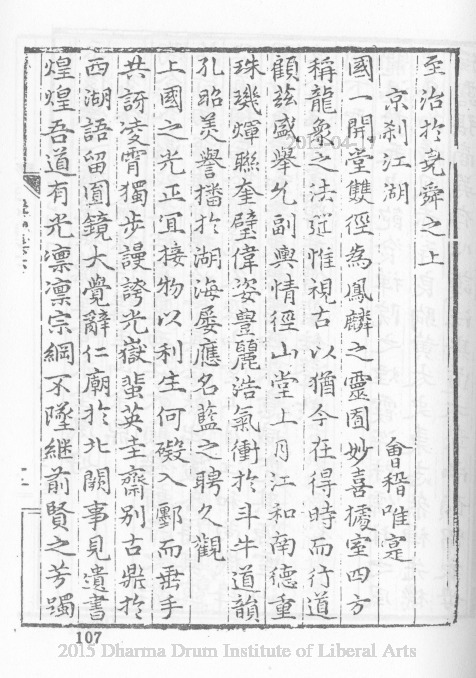 至治於堯舜之上
京刹江湖 會稽唯寔
國一開堂雙徑為鳳麟之靈囿妙喜據室四方
稱龍象之法筵惟視古以猶今在得時而行道
顧茲盛舉允副輿情徑山堂上月江和南德重
珠璣煇聯奎璧偉姿豊麗浩氣衝於斗牛道韻
孔昭美譽播於湖海屡應名藍之聘久觀
上國之光正宜接物以利生何礙入鄽而垂手
共訝凌霄獨步謾誇光嶽蜚英圭齋別古鼎於
西湖語留圓鏡大覺辭仁廟於北闕事見遺書
煌煌吾道有光凛凛宗綱不墜継前賢之芳躅
107
2015 Dharma Drum Institute of Liberal Arts